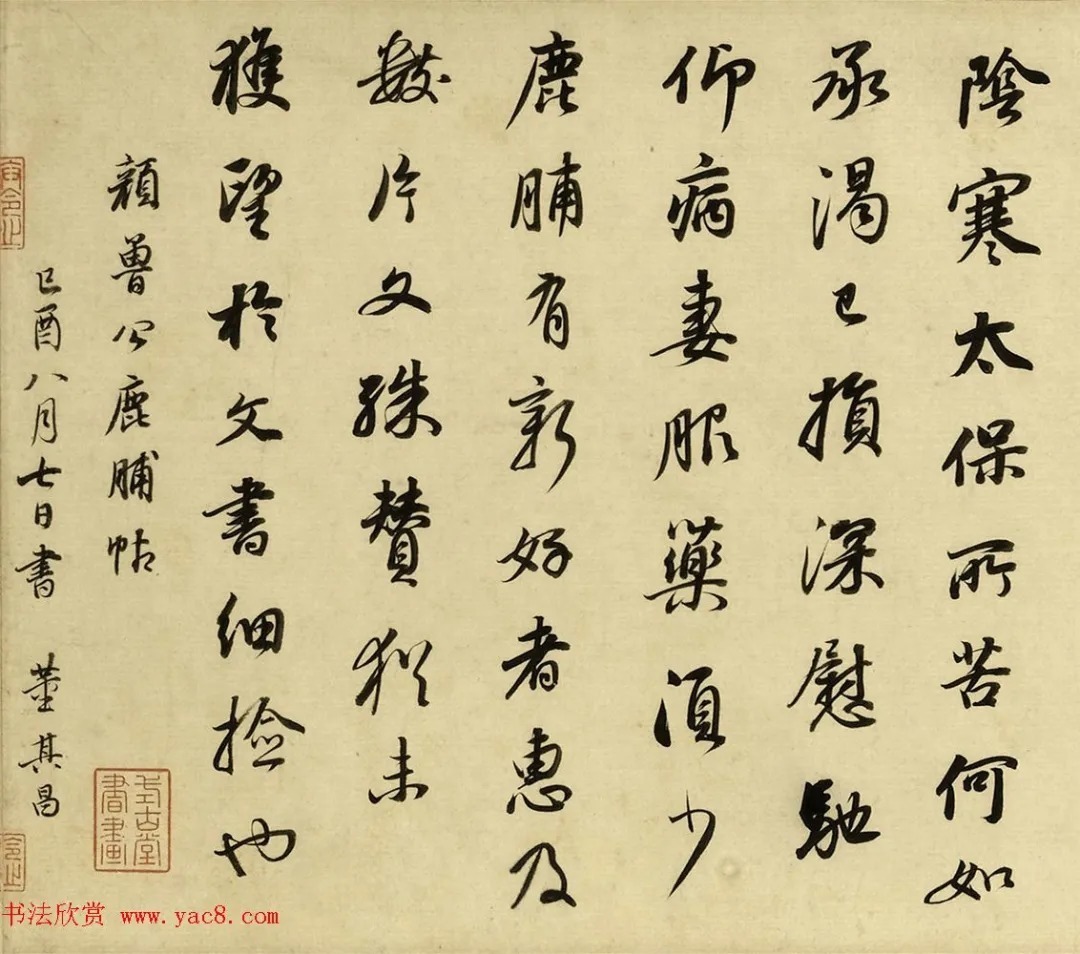 陰寒太保所苦何如
承渴已損深慰馳
仰病妻服藥須少
鹿脯有新好者惠及
數片文殊贊猶未
獲望於文書細撿也
顏魯公鹿脯帖
己酉八月七日書 董其昌
書畫
書法欣赏 www.yac8.com